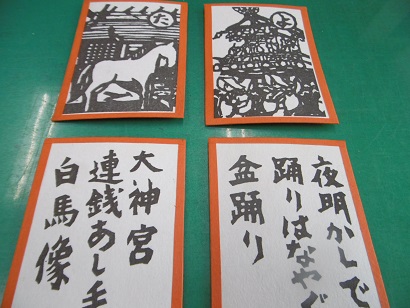 た
よ
大神宮
連銭あし毛
白馬像
夜明かしで
踊りはなやぐ
盆踊り